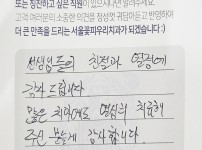 또는 칭찬하고 싶은 직원이 있으시다면 알려주세요.
고객 여러분의 소중한 의견을 정성껏 귀담아듣고 반영하여
더 큰 만족을 드리는 서울꽃피우리치과가 되겠습니다 :)
선생님들의 친절과 열정에
감사드립니다
많은 치아에도 열심히 치료해
주신 분들께 감사합니다